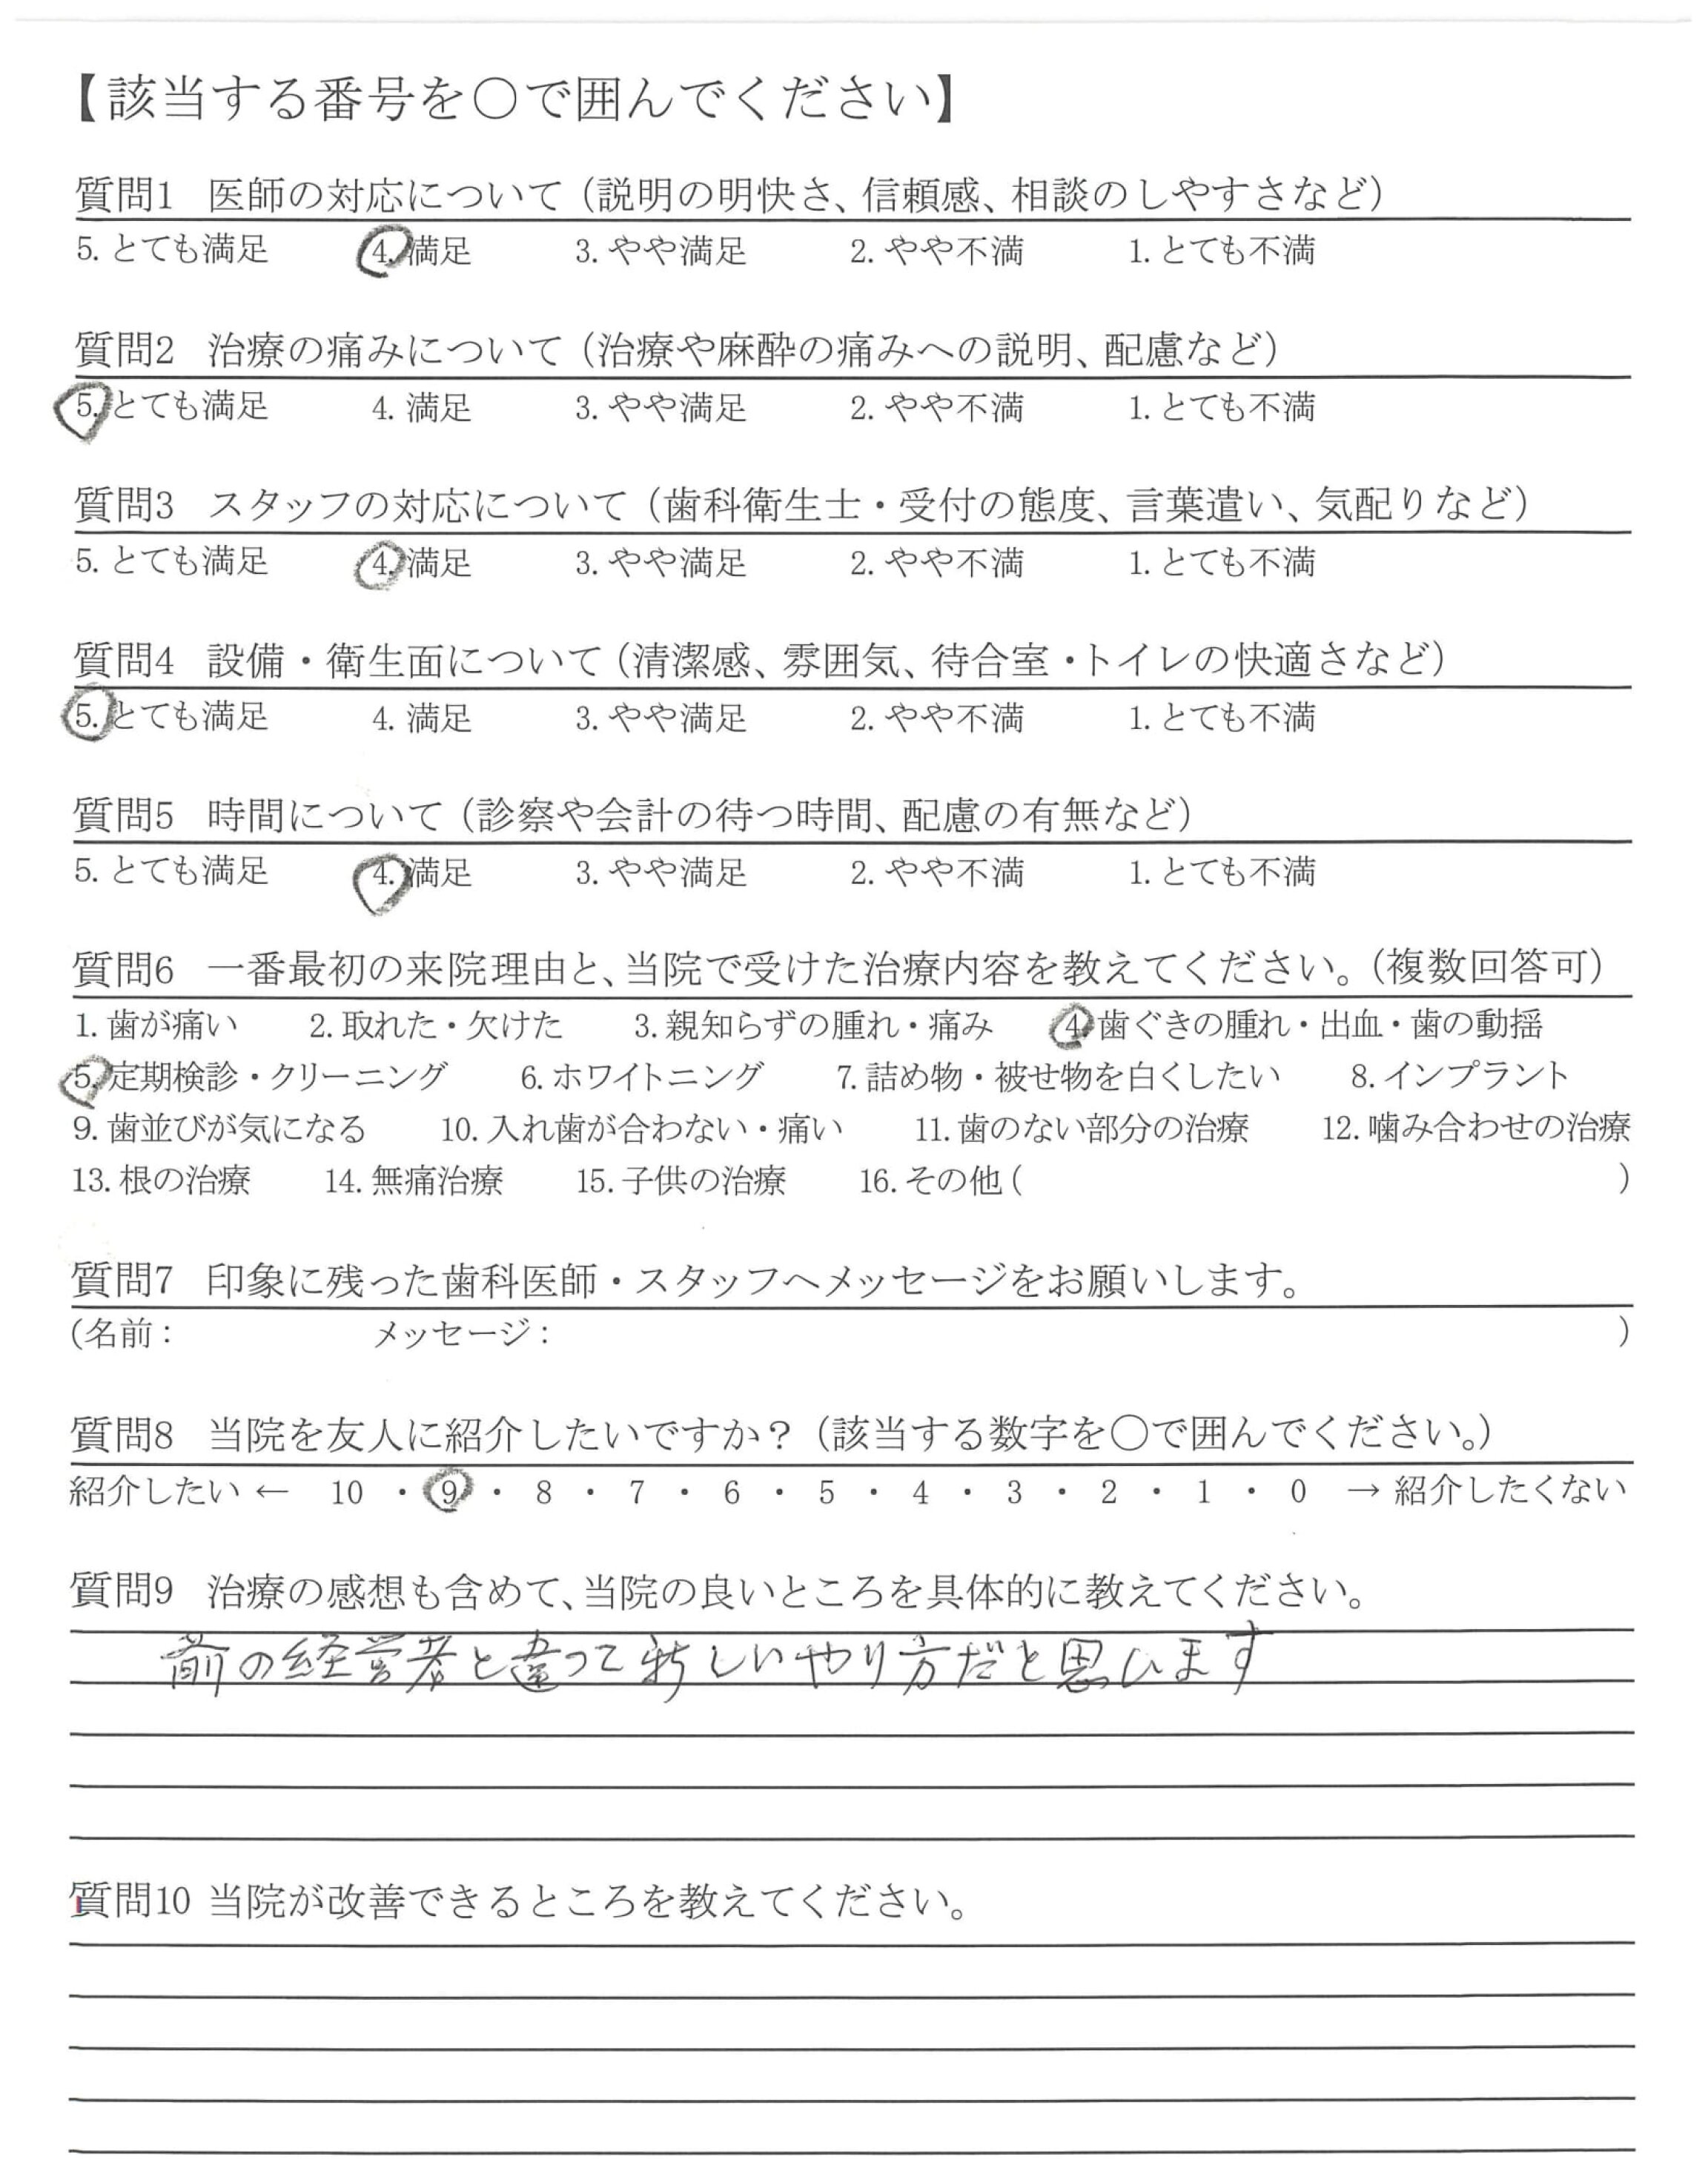 【該当する番号を〇で囲んでください】
質問1 医師の対応について（説明の明快さ、信頼感、相談のしやすさなど）
5. とても満足 4. 満足 3. やや満足 2. やや不満 1. とても不満
質問2 治療の痛みについて（治療や麻酔の痛みへの説明、配慮など）
5. とても満足 4. 満足 3. やや満足 2. やや不満 1. とても不満
質問3 スタッフの対応について（歯科衛生士・受付の態度、言葉遣い、気配りなど）
5. とても満足 4. 満足 3. やや満足 2. やや不満 1. とても不満
質問4 設備・衛生面について（清潔感、雰囲気、待合室・トイレの快適さなど）
5. とても満足 4. 満足 3. やや満足 2. やや不満 1. とても不満
質問5 時間について（診察や会計の待つ時間、配慮の有無など）
5. とても満足 4. 満足 3. やや満足 2. やや不満 1. とても不満
質問6 一番最初の来院理由と、当院で受けた治療内容を教えてください。（複数回答可）
1. 歯が痛い 2. 取れた・欠けた 3. 親知らずの腫れ・痛み 4. 歯ぐきの腫れ・出血・歯の動揺
5. 定期検診・クリーニング 6. ホワイトニング 7. 詰め物・被せ物を白くしたい 8. インプラント
9. 歯並びが気になる 10. 入れ歯が合わない・痛い 11. 歯のない部分の治療 12. 噛み合わせの治療
13. 根の治療 14. 無痛治療 15. 子供の治療 16. その他（ ）
質問7 印象に残った歯科医師・スタッフへメッセージをお願いします。
（名前： メッセージ： ）
質問8 当院を友人に紹介したいですか？（該当する数字を〇で囲んでください。）
紹介したい ← 10 ・ 9 ・ 8 ・ 7 ・ 6 ・ 5 ・ 4 ・ 3 ・ 2 ・ 1 ・ 0 → 紹介したくない
質問9 治療の感想も含めて、当院の良いところを具体的に教えてください。
前の経営者と違って新しいやり方だと思ひます
質問10 当院が改善できるところを教えてください。